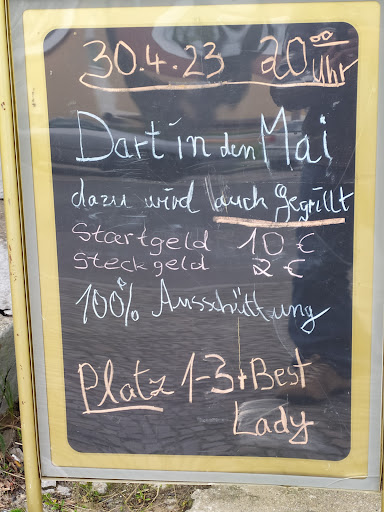 30.4.23 20ºº Uhr
Dart in den Mai
dazu wird auch Gegrillt
Startgeld 10 €
Steckgeld 2 €
100% Ausschüttung
Platz 1-3 + Best
Lady